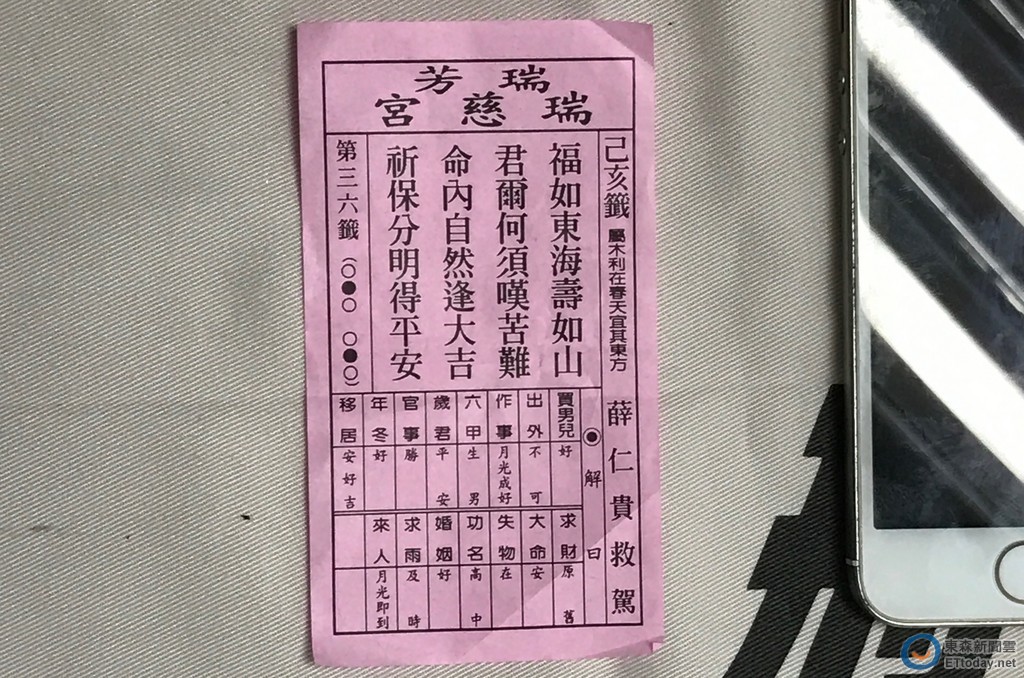 瑞芳
瑞慈宮
己亥籤 屬木利在春天宜其東方 薛仁貴救駕
福如東海壽如山
君爾何須嘆苦難
命內自然逢大吉
祈保分明得平安
第三六籤(○●○ ○●○)
◉解曰
買男兒 好
出外 不可
作事 月光成好
六甲 生男
歲君 平安
官事 勝
年冬 好
移居 安好吉
求財 原舊
大命 安
失物 在
功名 高中
婚姻 好
求雨 及時
來人 月光即到
東森新聞雲
ETtoday.net